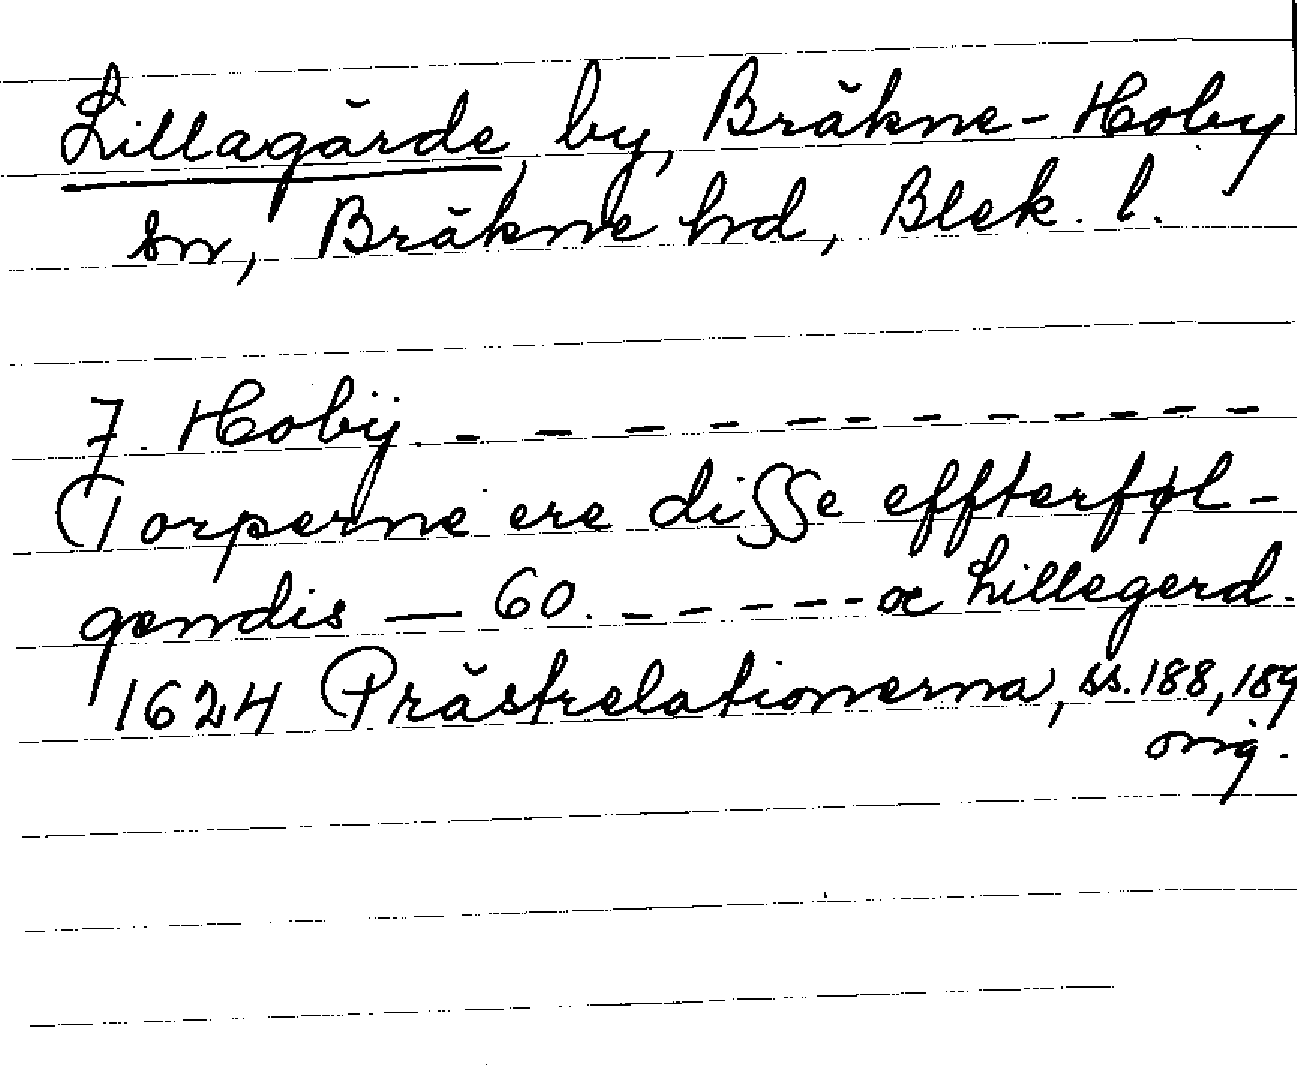 Lillagärde, by, Bräkne-Hoby
sn, Bräkne hd, Blek. l.
7. Hobÿ. - - - - - - - - - - -
Torperne ere disse effterføl-
gendis — 60. - - - - - - œ Lillegerd.
1624 Prästrelationerna, ss. 188, 189
orig.